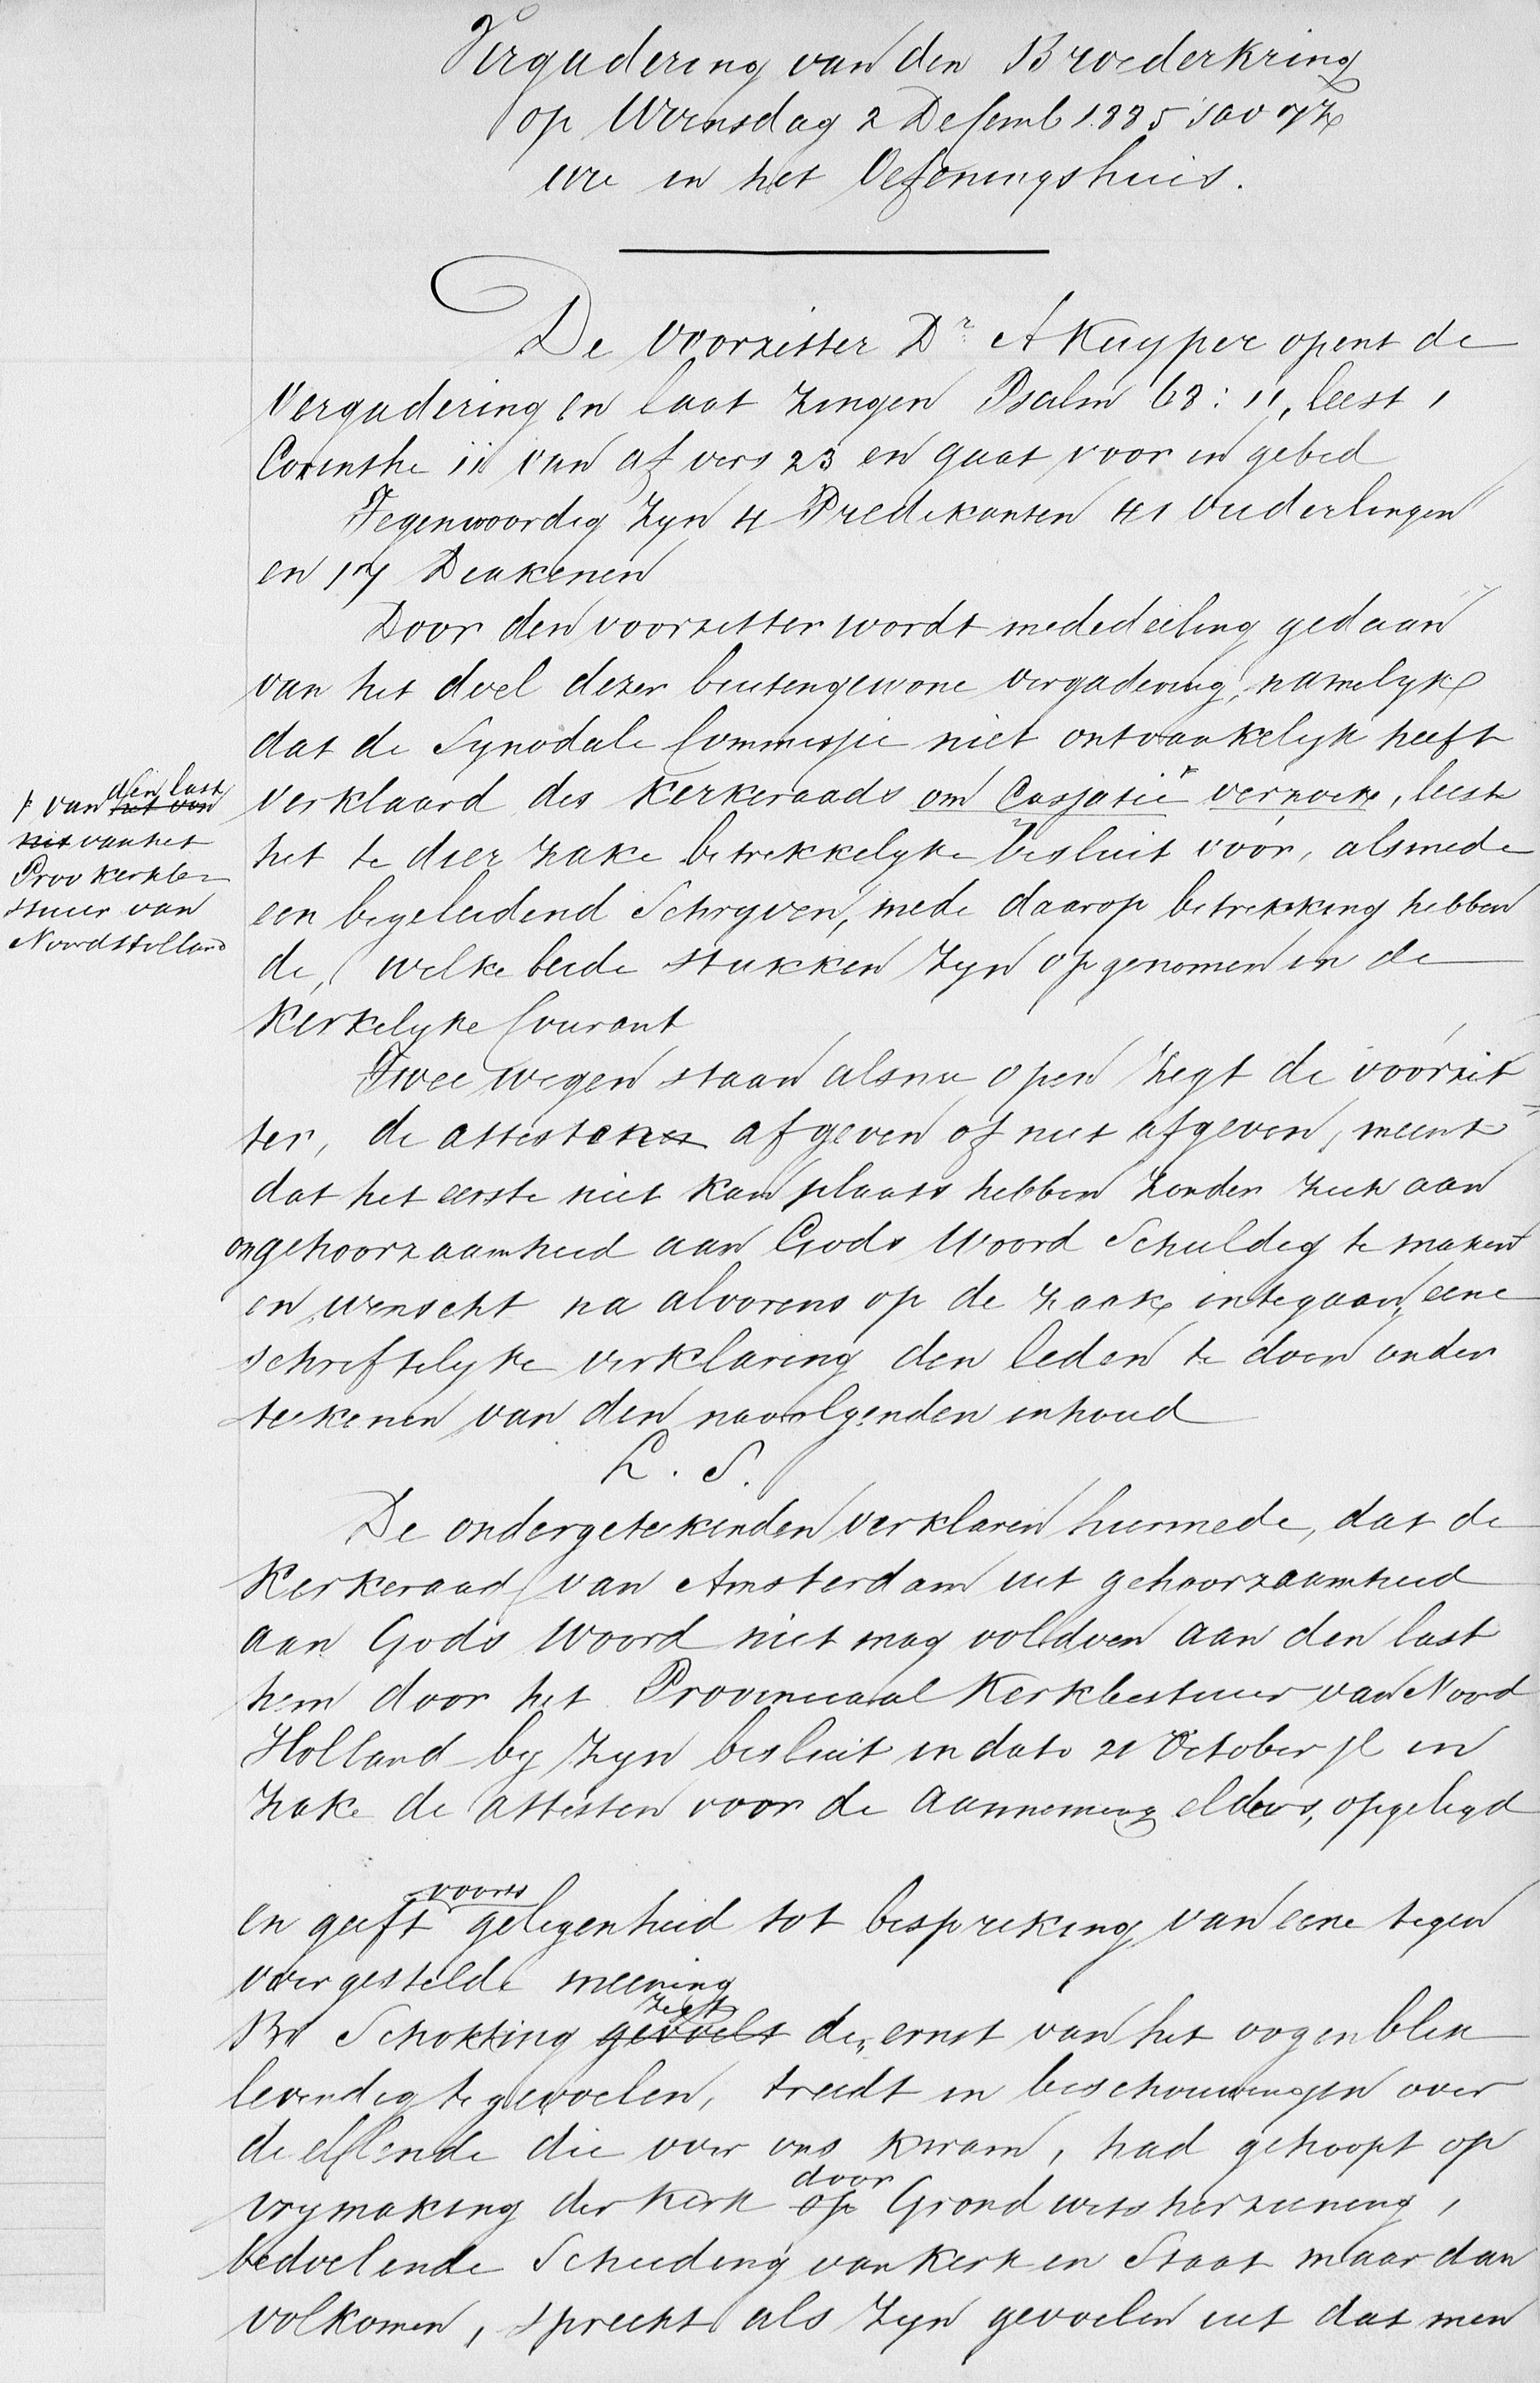 Vergadering van den Broederkring
op Woensdag 2 Decemb 1885 'sav 7½
ure in het Oefeningshuis.
De voorzitter Dr. A Kuyper opent de
Vergadering en laat zingen Psalm 68: 11, leest 1
Corinthe 11 van af vers 23 en gaat voor in gebed
Tegenwoordig zyn 4 Predikanten 41 Ouderlingen
en 17 Diakenen
Door den voorzitter wordt mededeeling gedaan
van het doel dezer buitengewone vergadering, namelyk
dat de Synodale Commissie niet ontvankelyk heeft
verklaard des Kerkeraads om Cassatie verzoek, leest
het te dier zake betrekkelyke besluit voor, alsmede
een begeleidend Schryven, mede daarop betrekking hebben
de, welke beide stukken zyn opgenomen in de
Kerkelyke Courant
van het van den last
het van het
Prov kerkbe
stuur van
Noord Holland
Twee wegen staan alsnu open zegt de voorzit
ter, de attesten afgeven of niet afgeven, meent
dat het eerste niet kan plaats hebben zonder zich aan
ongehoorzaamheid aan Gods Woord Schuldig te maken
en wenscht na alvorens op de zaak integaan, eene
schriftelyke verklaring den leden te doen onder
teekenen van den navolgenden inhoud
L. S.
De ondergeteekenden verklaren hiermede, dat de
Kerkeraad van Amsterdam uit gehoorzaamheid
aan Gods Woord niet mag voldoen aan den last
hem door het Provinciaal Kerkbestuur van Noord
Holland by zyn besluit in dato 21 October jl in
zake de attesten voor de aanneming elders, opgelegd
en geeft voorts gelegenheid tot bespreking van eene tegen
overgestelde meening
Br Schokking gevoelt zegt den ernst van het oogenblik
levendig te gevoelen, treedt in beschouwingen over
de ellende die over ons kwam, had gehoopt op
vrymaking der Kerk op door Grondwetsherziening,
bedoelende Scheiding van Kerk en Staat maar dan
volkomen, spreekt als zyn gevoelen uit dat men